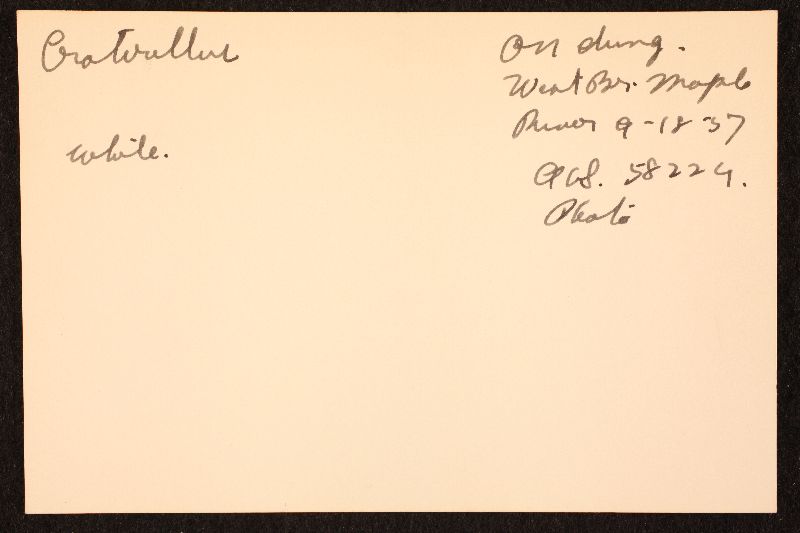 Craterellus
On dung.
West Br. Maple
River 9-18-37
white.
58224.
Photo